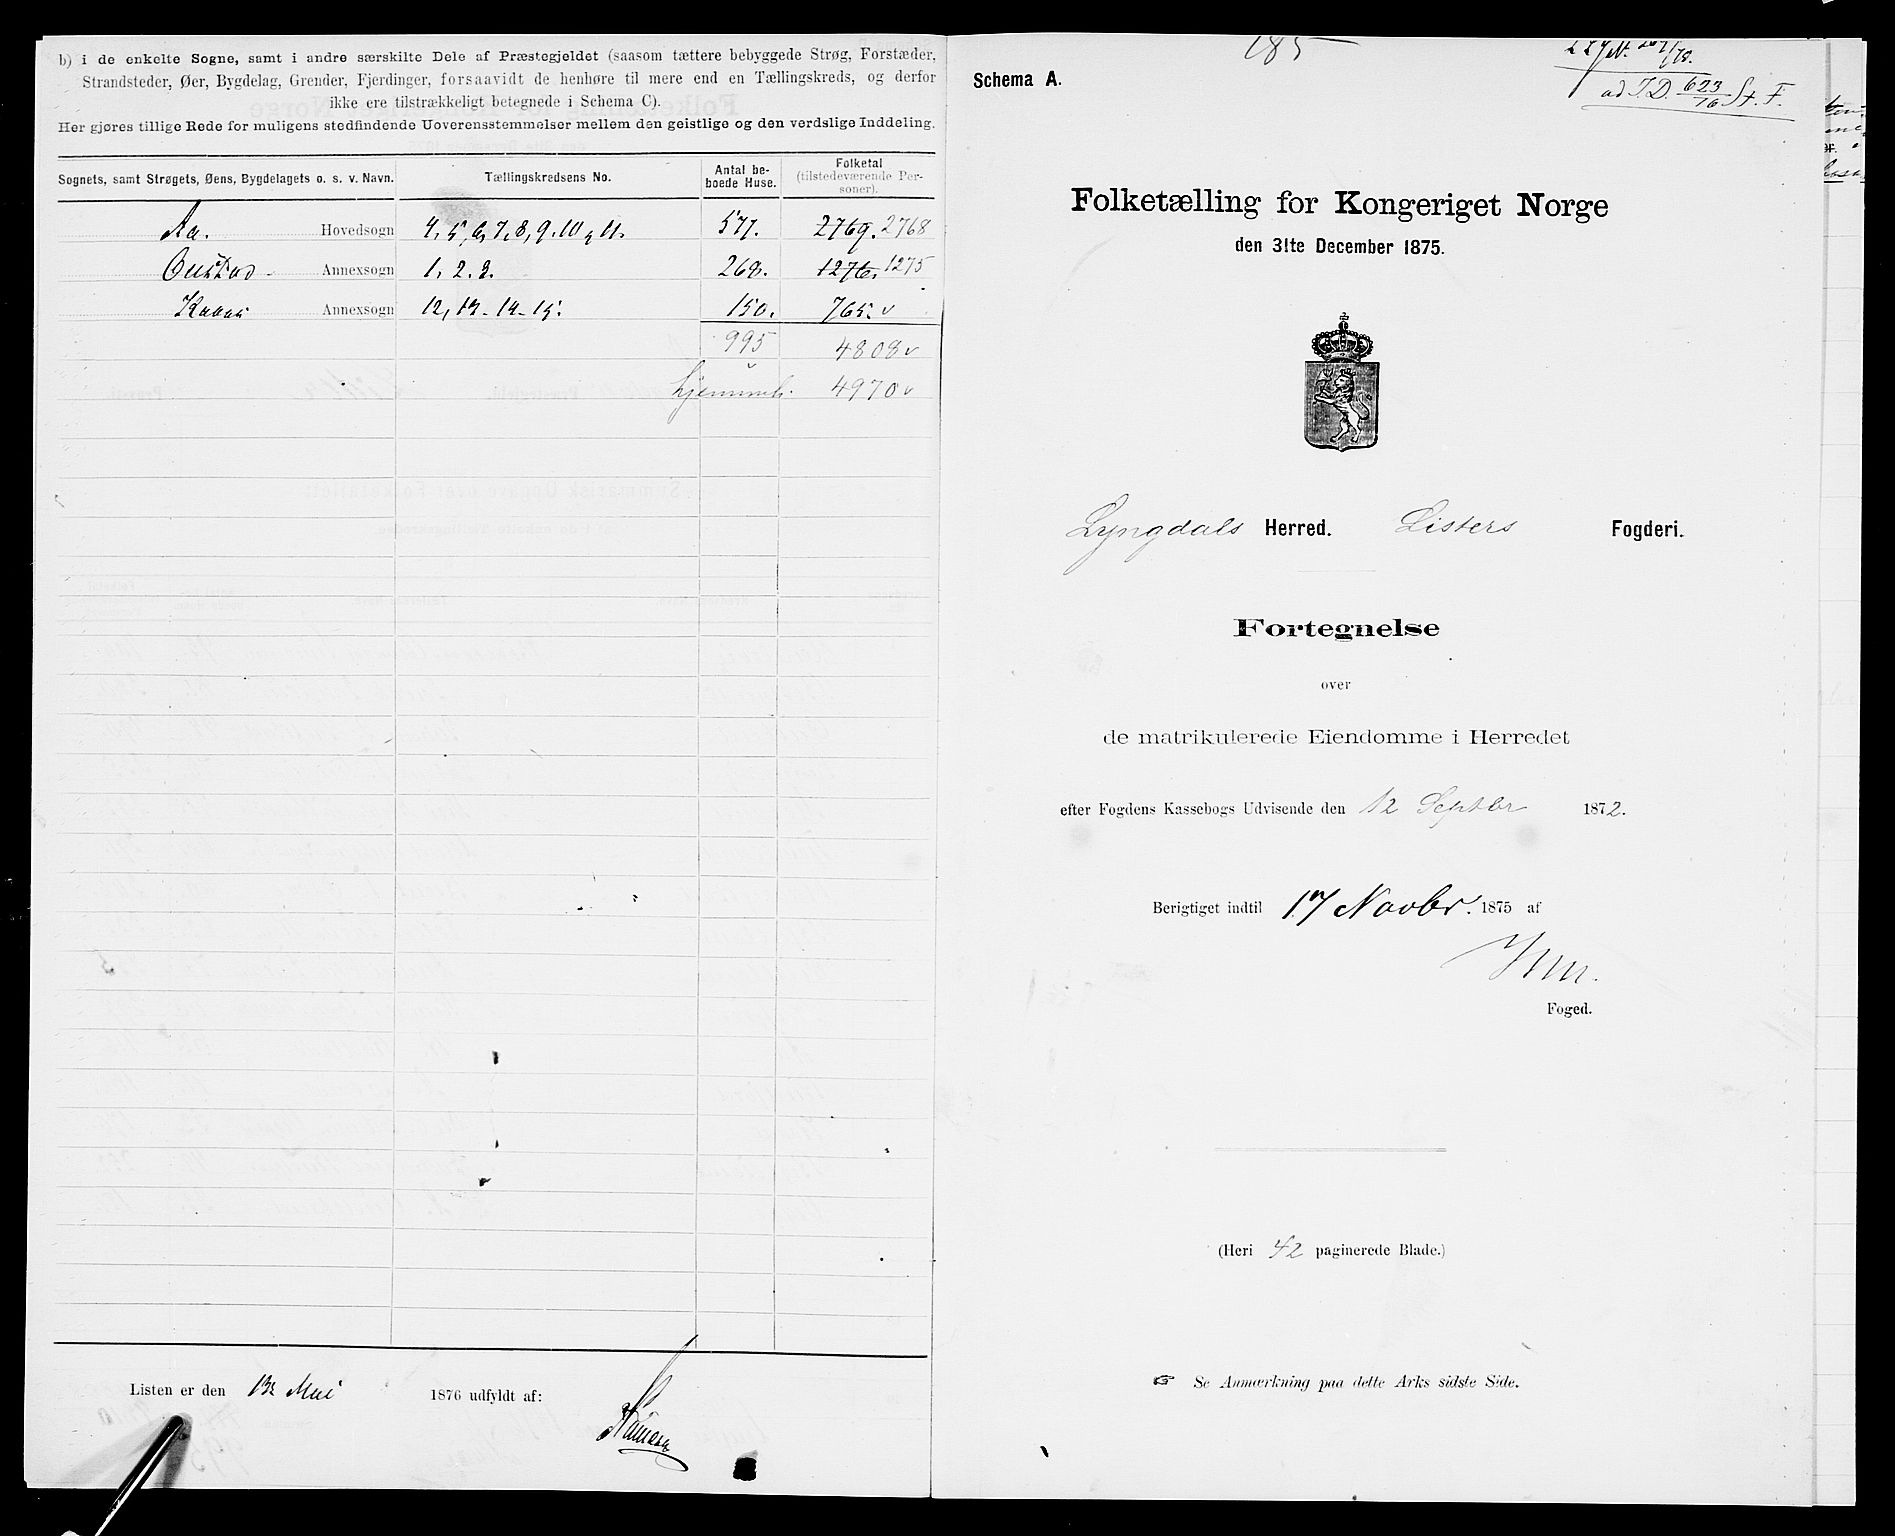 b) i de enkelte Sogne, samt i andre særskilte Dele af Præstegjeldet (saasom tættere bebyggede Strøg, Forstæder,
Strandsteder, Øer, Bygdelag, Grender, Fjerdinger, forsaavidt de henhøre til mere end en Tællingskreds, og derfor
ikke ere tilstrækkeligt betegnede i Schema C).
Her gjøres tillige Rede for muligens stedfindende Uoverensstemmelser mellem den geistlige og den verdslige Inddeling.
Sognets, samt Strøgets, Øens, Bygdelagets o. s. v. Navn. Tællingskredsens No. Antal beboede Huse. Folketal (tilstedeværende Personer).
Aa. Hovedsogn 4, 5, 6, 7, 8, 9, 10, 11. 577. 2769. 2768
Annexsogn 1, 2, 3. 268. 1276. 1275
Annexsogn 12, 13 - 14 - 15. 150. 765. v
995 4808 v
hjemmeh. 4970 v
Listen er den 13 Mai 1876 udfyldt af:
185
ad J.D. 623/76 St. F.
Schema A.
Folketælling for Kongeriget Norge
den 31te December 1875.
Lyngdals Herred. Listers Fogderi.
Fortegnelse
over
de matrikulerede Eiendomme i Herredet
efter Fogdens Kassebogs Udvisende den 12 Septbr 1872.
Berigtiget indtil 17 Novbr. 1875 af
Foged.
(Heri 42 paginerede Blade.)
☞ Se Anmærkning paa dette Arks sidste Side.